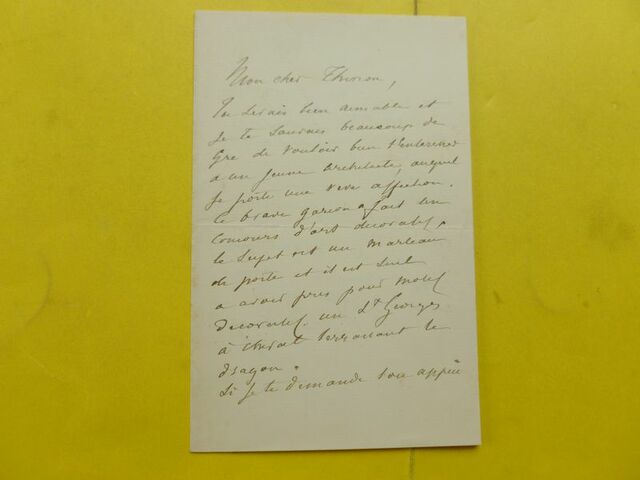 Mon cher Thirion,
Tu serais bien aimable et
je te saurais beaucoup de
gré de vouloir bien t'intéresser
à un jeune architecte, auquel
je porte une vive affection.
Ce brave garçon a fait un
concours d'art décoratif,
le sujet est un marteau
de porte et il est seul
a avoir pris pour motif
décoratif un St Georges
à cheval terrassant le
dragon.
Si je te demande ton appui